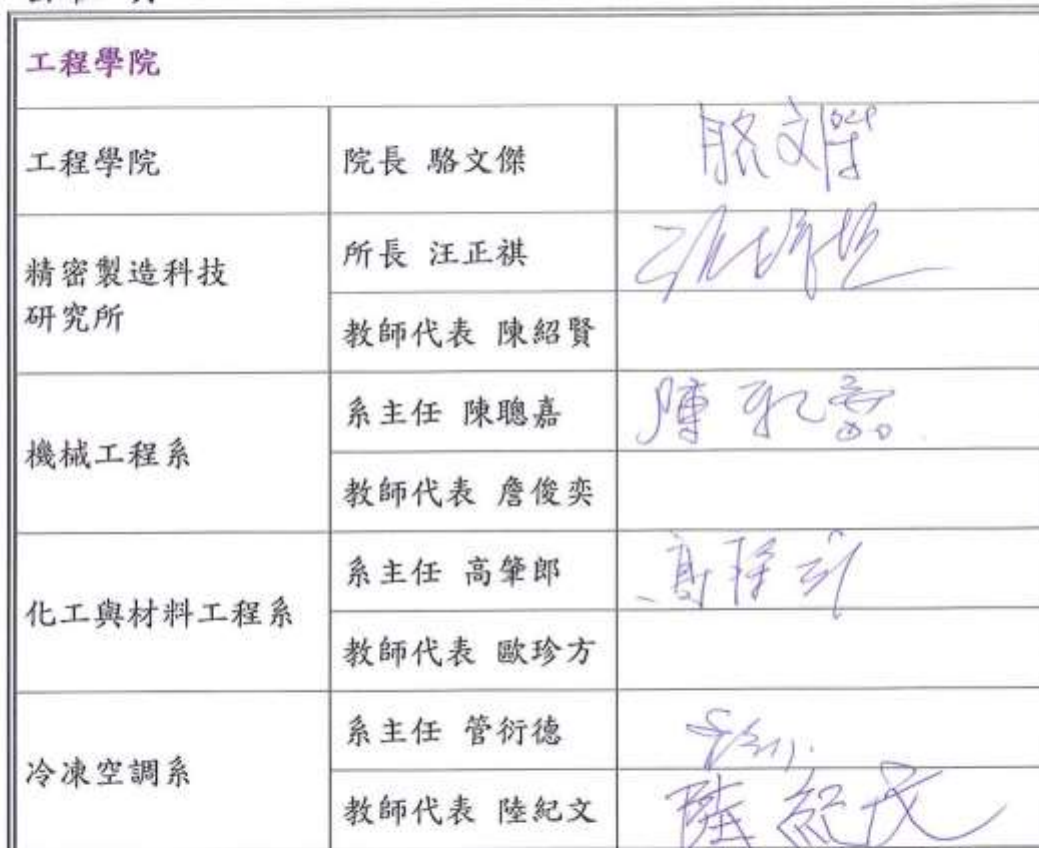 工程學院
工程學院
院長 駱文傑
駱文傑
精密製造科技
研究所
所長 汪正祺
教師代表 陳紹賢
機械工程系
系主任 陳聰嘉
教師代表 詹俊奕
化工與材料工程系
系主任 高肇郎
教師代表 歐珍方
冷凍空調系
系主任 管衍德
教師代表 陸紀文
陸紀文